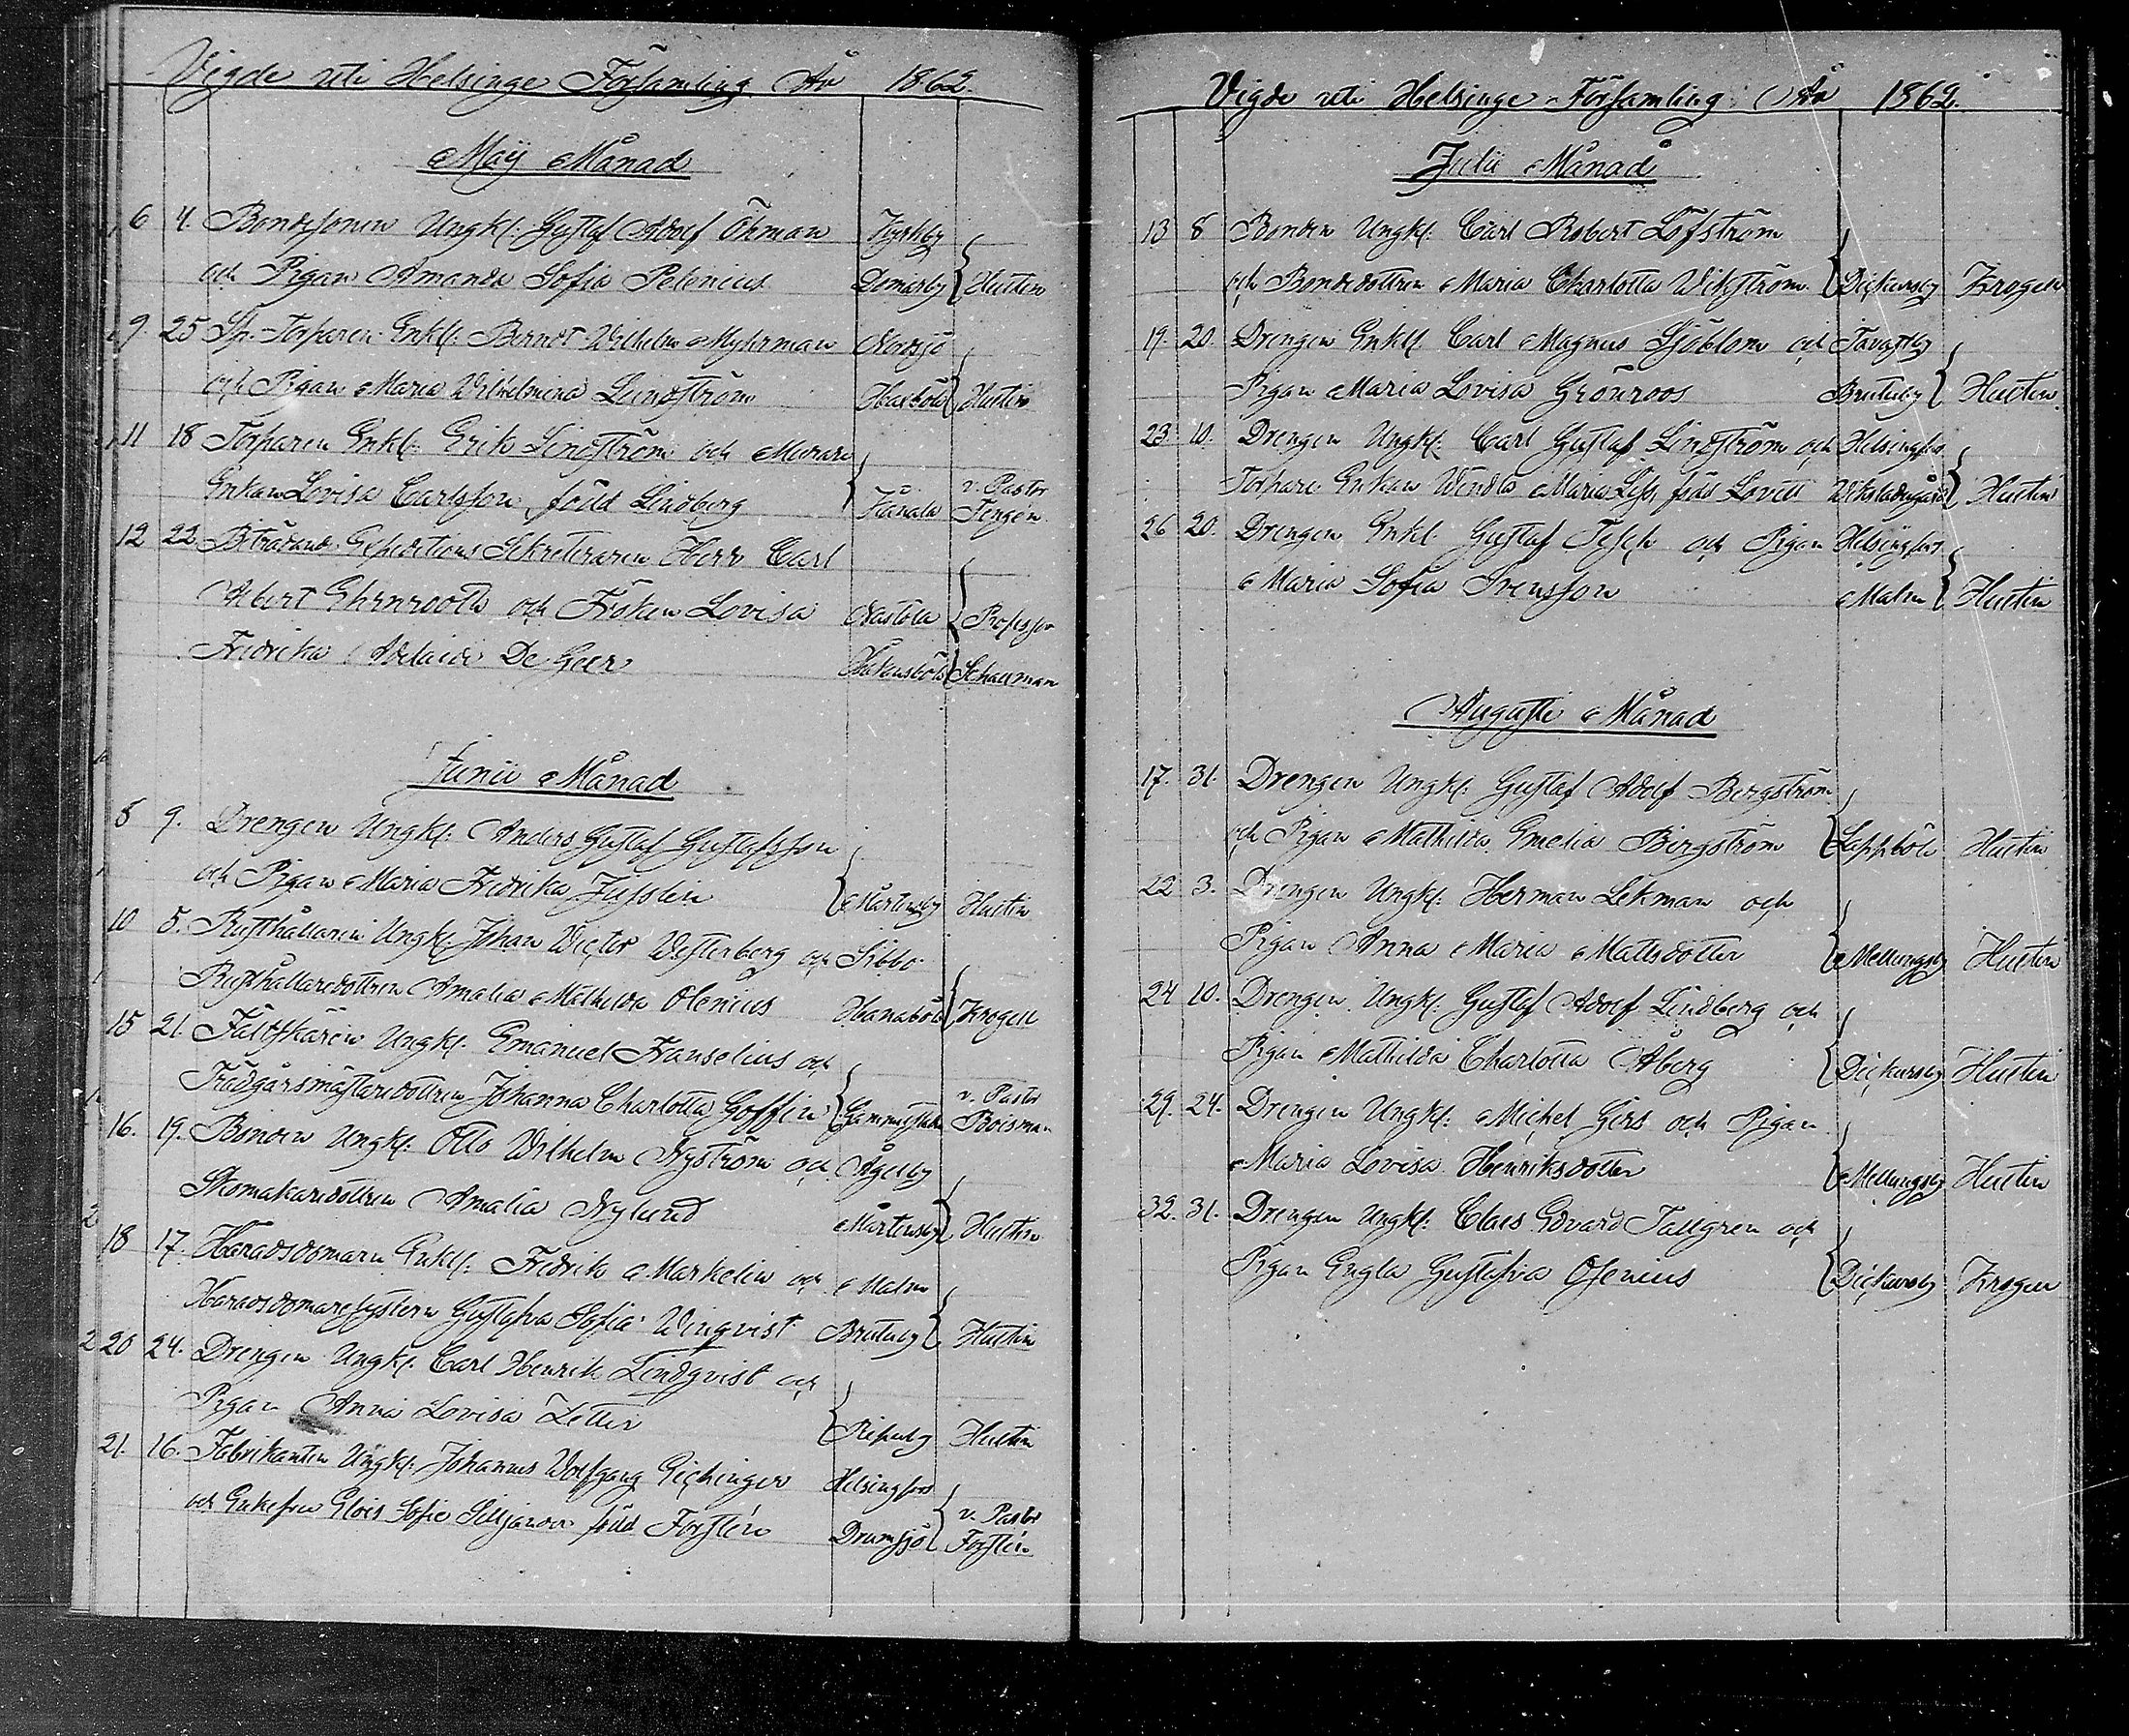 Vigde uti Helsinge Församling År 1862.
Maij Månad
6 4. Bondesonen Ungkl. Gustaf Adolf Öhman
och Pigan Amanda Sofia Pelenius Domarby Hustin
9. 25 Sp. Torparen Enkl. Berndt Wilhelm Myhrman Norsjö
och Pigan Maria Wilhelmina Lindström Haxböle Hustin
11 18 Torparen Enkl. Erik Lindström och Murare
Enkan Lovisa Carlsson, född Lindberg Kånala v. Pastor Tengén
12 22 Biträdande Expeditions Sekreteraren Herr Carl
Albert Ehrnrooth och Fröken Lovisa Nastola Professor
Fredrika Adelaide De Geer Håkansböle Schauman
Junii Månad
8 9. Drengen Ungkl. Anders Gustaf Gustafsson
och Pigan Maria Fredrika Mårtensby Hustin
10 5. Rusthållaren Ungkl. Johan Victor Westerberg och Sibbo
Rusthållaredottren Amalia Mathilda Olenius Hanaböle Krogell
15 21. Fältskären Ungkl. Emanuel Franselius och
Trädgårsmästaredottren Johanna Charlotta Goffin Gammelstaden v. Pastor Boisman
16. 19. Bonden Ungkl. Otto Wilhelm Nyström och Ågelby
Skomakaredottren Amalia Nylund Mårtensby Hustin
18 17. Häradsdomarn Enkl. Fredrik Markelin och Malm
Häradsdomaresystern Gustafva Sofia Winqvist Brutuby Hustin
20 24. Drengen Ungkl. Carl Henrik Lindqvist och
Pigan Anna Lovisa Zetter Ripuby Hustin
21. 16. Fabrikanten Ungkl. Johannes Wolfgang Eichinger Helsingfors
och Enkefru Elois Sofie född Forstén Drumsjö v. Pastor Forstén
Vigde uti Helsinge Församling År 1862.
Julii Månad
13 8 Bonden Ungkl. Carl Robert Löfström
och Bondedottren Maria Charlotta Wikström Dickursby Krogell
19. 20. Drengen Enkl. Carl Magnus Sjöblom och Tavastby
Pigan Maria Lovisa Grönroos Brutuby Hustin
23 10. Drengen Ungkl. Carl Gustaf Lindström och Helsingfors
Torpare Enkan Wendla Maria född Hustin
26 20. Drengen Enkl. Gustaf Tesch och Pigan Helsingfors
Maria Sofia Svensson Malm Hustin
Augusti Månad
17. 31. Drengen Ungkl. Gustaf Adolf Bergström
och Pigan Mathilda Emelia Bergström Lappböle Hustin
22 3. Drengen Ungkl. Herman Lekman och
Pigan Anna Maria Mattsdotter Mellungsby Hustin
24 10. Drengen Ungkl. Gustaf Adolf Lindberg och
Pigan Mathilda Charlotta Åberg Dickursby Hustin
29. 24. Drengen Ungkl. Michel Gers och Pigan
Maria Lovisa Henriksdotter Mellungsby Hustin
32. 31. Drengen Ungkl. Claes Edvard Tallgren och
Pigan Engla Gustafva Olenius Dickursby Krogell